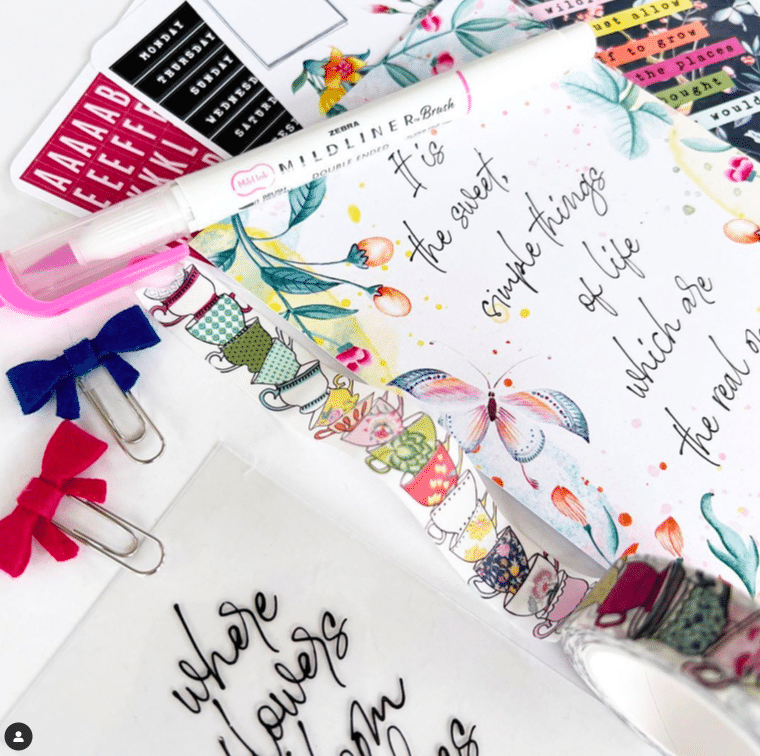 MONDAY
THURSDAY
SUNDAY
WEDNESD
SATURD
AAAAAB
EEEEFF
KKKL
ust allow
f to grow
the places
ought
would
ZEBRA
MILDLINER-Brush
DOUBLE ENDED
It is
the sweet,
simple things
of life
which are
the real o
where
flowers